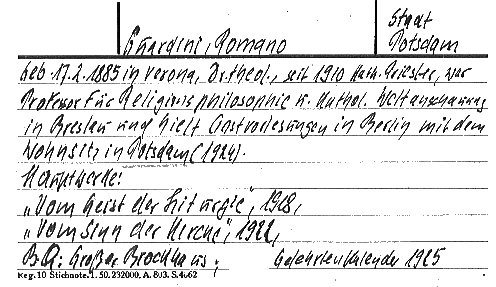 Stadt
Guardini, Romano Potsdam
Geb. 17.2.1885 in Verona, Dr. theol., seit 1910 kath. Priester, war
Professor für Religionsphilosophie u. kathol. Weltanschauung
in Breslau und hielt Gastvorlesungen in Berlin mit dem
Wohnsitz in Potsdam (1924).
Hauptwerke:
„Vom Geist der Liturgie", 1918,
„Vom Sinn der Kirche", 1922,
B.Q: Großer Brockhaus; Gelehrtenkalender 1925
Reg. 10 Stichnote. 1. 50. 232000. A. 803. S. 4662